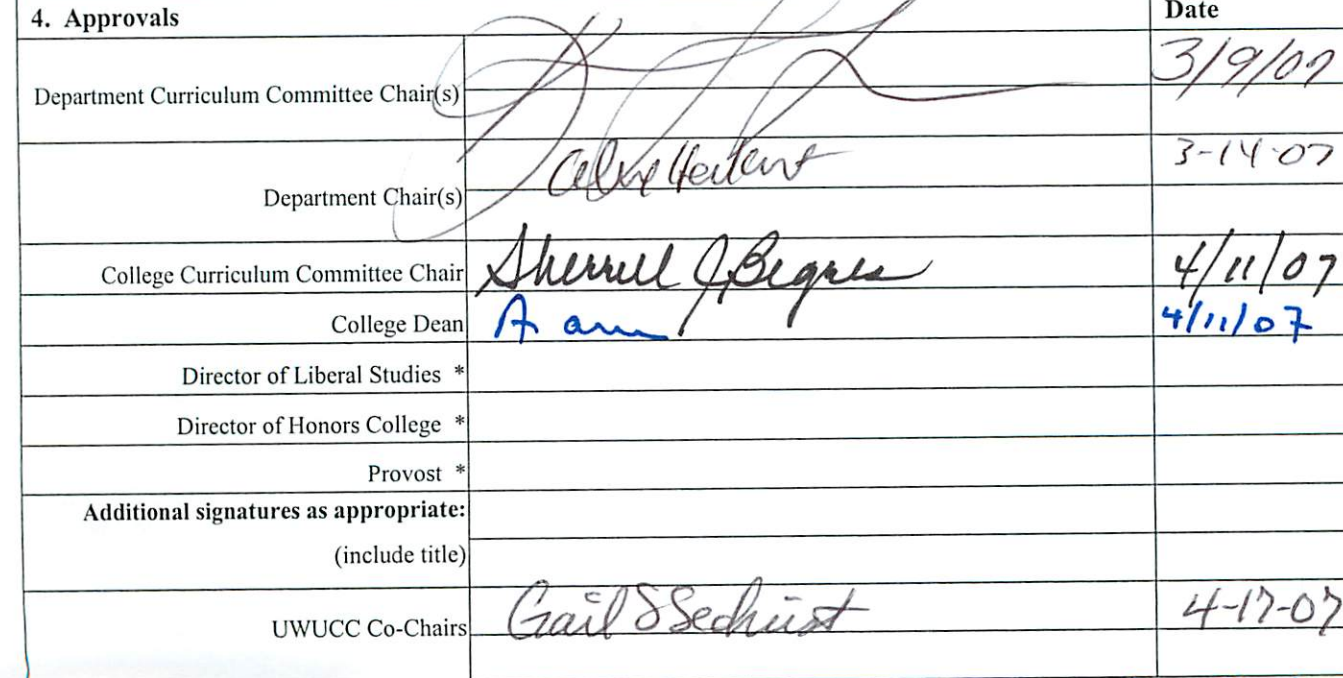 4. Approvals Date
Department Curriculum Committee Chair(s) 3/9/07
Department Chair(s) 3-14-07
College Curriculum Committee Chair Sherrell J Begres 4/11/07
College Dean 4/11/07
Director of Liberal Studies *
Director of Honors College *
Provost *
Additional signatures as appropriate:
(include title)
UWUCC Co-Chairs Gail S Sechrist 4-17-07